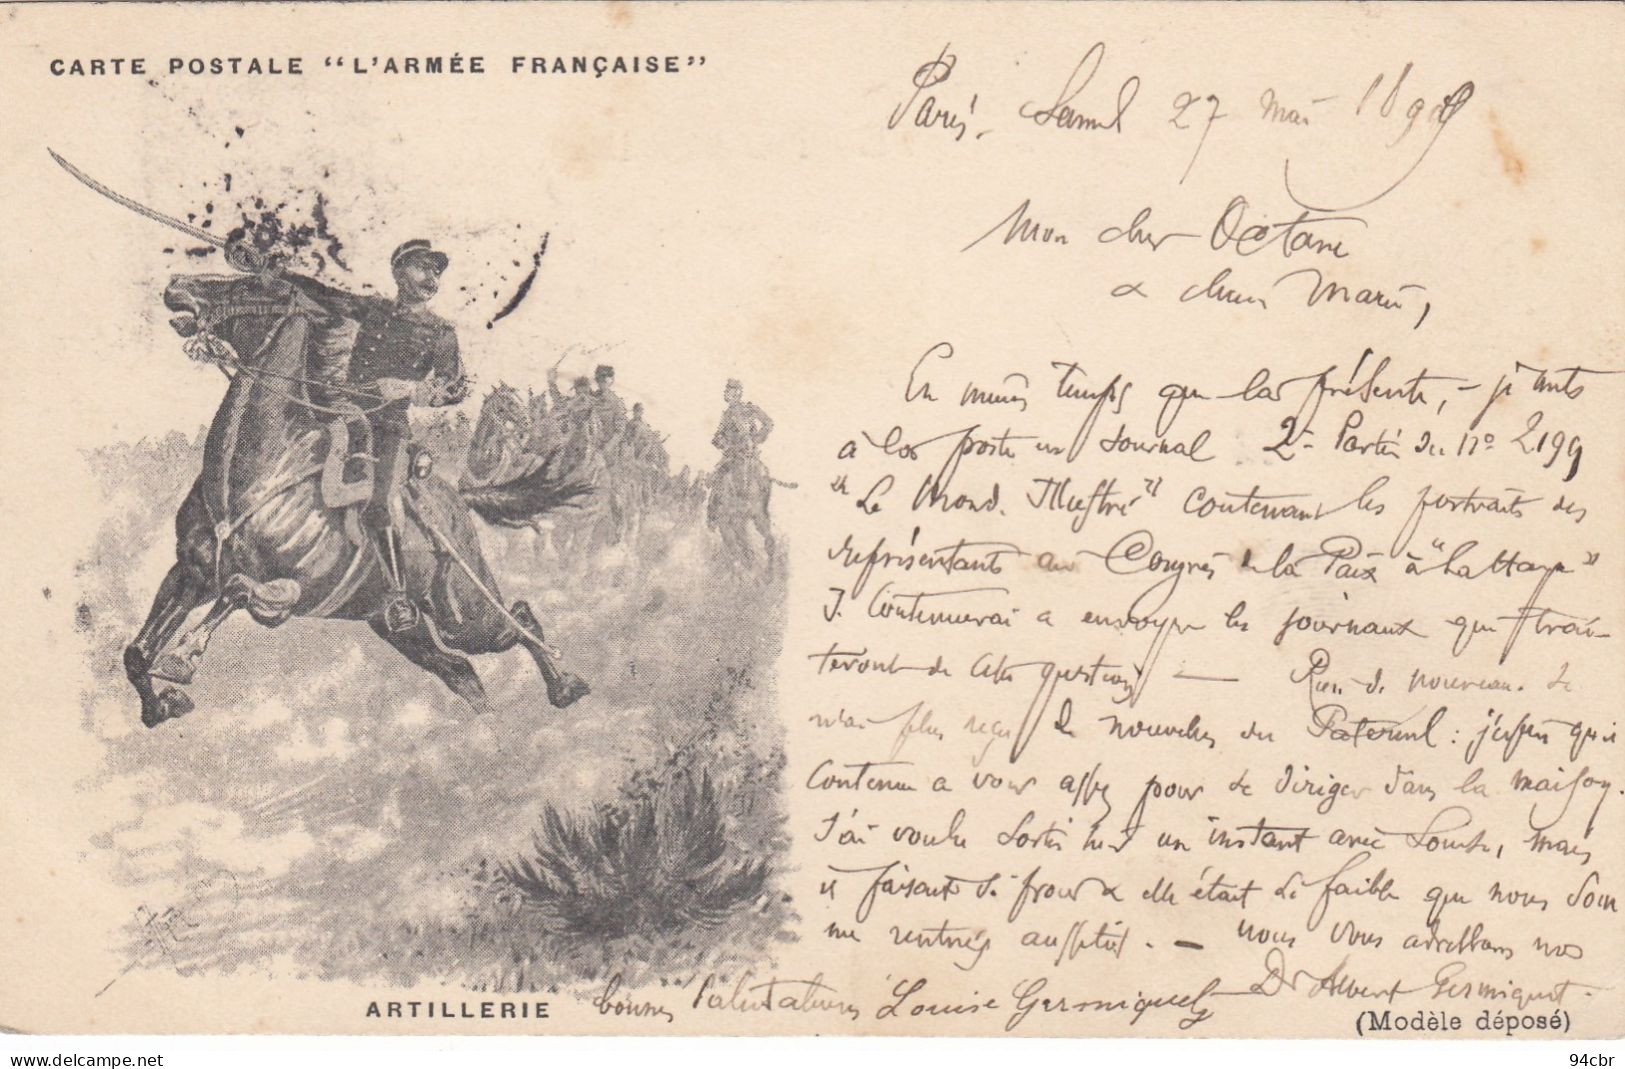 CARTE POSTALE “L'ARMÉE FRANÇAISE”
Paris, Samedi 27 mai 1899
Mon cher Octave
& chère Marie,
En même temps que la présente, – je mets
à la poste un Journal 2e Partie du No 2199
"Le Monde Illustré" contenant les portraits des
représentants au Congrès de la Paix à "La Haye"
Je continuerai a envoyer les journaux qui trai-
teront de cette question — Rien de nouveau. Je
n'ai plus reçu de nouvelles du Paternel : j'espère qu'il
continue a voir assez pour se diriger dans la maison.
J'ai voulu sortir hier un instant avec Louise, mais
il faisait si froid & elle était si faible que nous som
me rentrés aussitôt. — Nous vous adressons nos
bonnes salutations Louise Germiquet Dr Albert Germiquet.
ARTILLERIE
(Modèle déposé)
94cbr